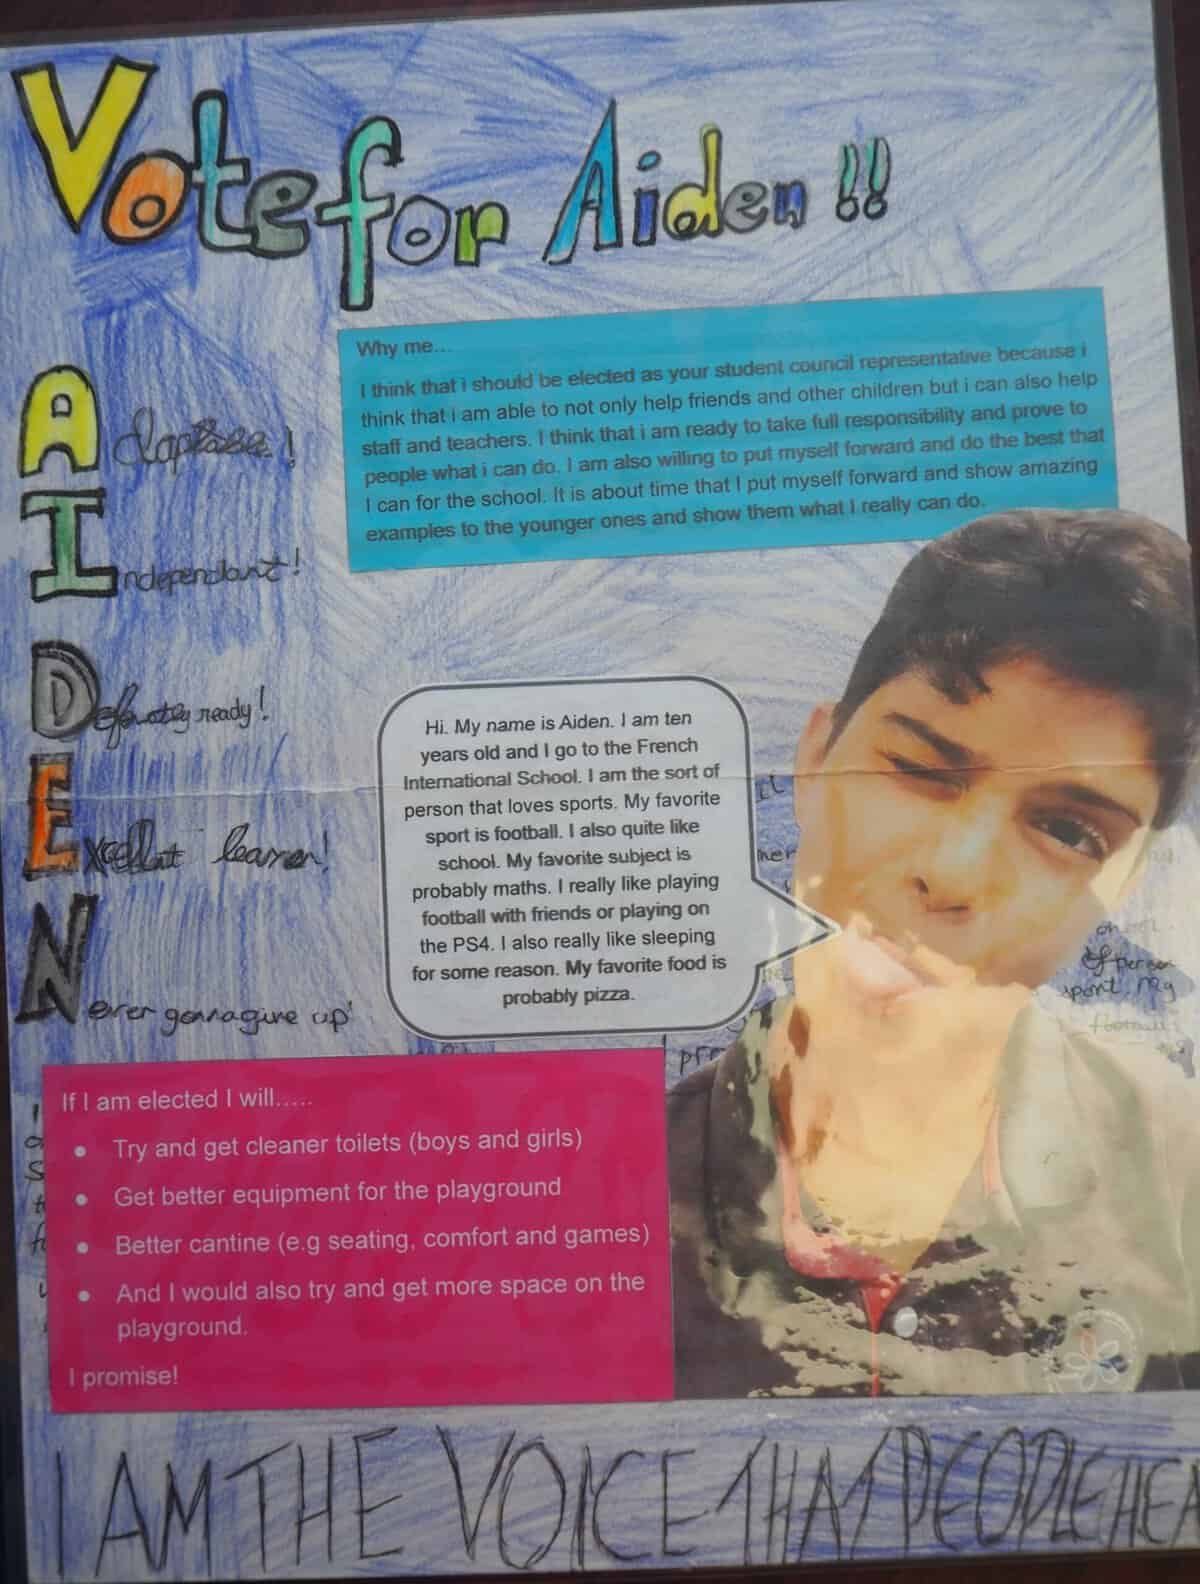 Vote for Aiden !!
Why me...
I think that i should be elected as your student council representative because i
think that i am able to not only help friends and other children but i can also help
staff and teachers. I think that i am ready to take full responsibility and prove to
people what i can do. I am also willing to put myself forward and do the best that
I can for the school. It is about time that I put myself forward and show amazing
examples to the younger ones and show them what I really can do.
Adaptable!
Independant!
Definately ready!
Excellent learner!
Never gonna give up!
Hi. My name is Aiden. I am ten
years old and I go to the French
International School. I am the sort of
person that loves sports. My favorite
sport is football. I also quite like
school. My favorite subject is
probably maths. I really like playing
football with friends or playing on
the PS4. I also really like sleeping
for some reason. My favorite food is
probably pizza.
of person
sport. My
football
If I am elected I will.....
● Try and get cleaner toilets (boys and girls)
● Get better equipment for the playground
● Better cantine (e.g seating, comfort and games)
● And I would also try and get more space on the
playground.
I promise!
I AM THE VOICE THAT PEOPLE HEA